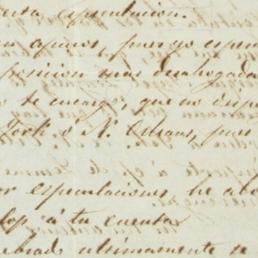 cuenta especulacion.
apuros, pues no espe
posicion mas desahogada
te encargo, que no
York o N. Orleans, pues
especulaciones he abo
á tu cuenta
ultimamente se